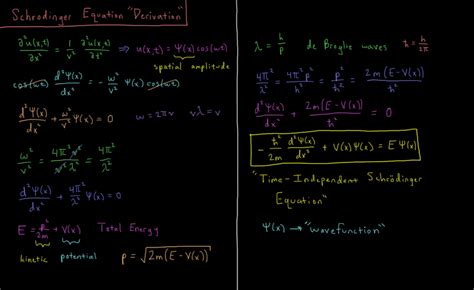 Schrodinger Equation "Derivation"
∂²u(x,t)/∂x² = 1/v² ∂²u(x,t)/∂t² ⇒ u(x,t) = Ψ(x)cos(ωt)
spatial amplitude
cos(ωt) d²Ψ(x)/dx² = -ω²/v² Ψ(x)cos(ωt)
d²Ψ(x)/dx² + ω²/v² Ψ(x) = 0 ω = 2πν νλ = v
ω²/v² = 4π²ν²/ν²λ² = 4π²/λ²
d²Ψ(x)/dx² + 4π²/λ² Ψ(x) = 0
E = p²/2m + V(x) Total Energy
kinetic potential p = √{2m(E-V(x))}
λ = h/p de Broglie waves ħ = h/2π
4π²/λ² = 4π²p²/h² = p²/ħ² = 2m(E-V(x))/ħ²
d²Ψ(x)/dx² + 2m(E-V(x))/ħ² = 0
-ħ²/2m d²Ψ(x)/dx² + V(x)Ψ(x) = EΨ(x)
"Time-Independent Schrödinger
Equation"
Ψ(x) → "wavefunction"